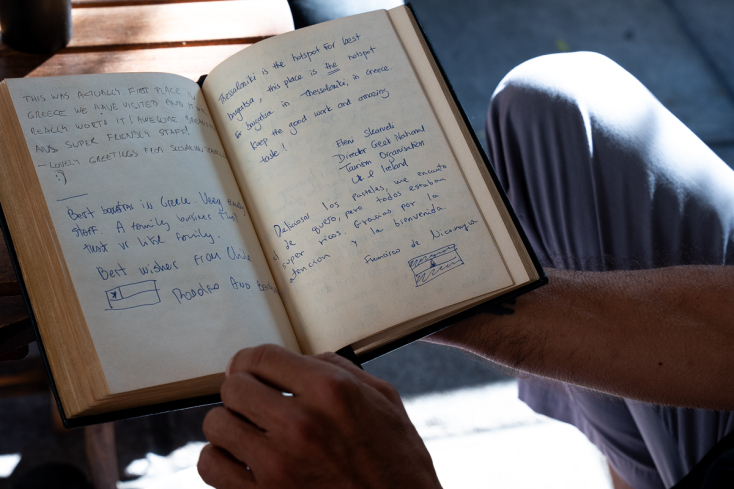 THIS WAS ACTUALLY FIRST PLACE
GREECE WE HAVE VISITED AND IT
REALLY WORTH IT! AWESOME
AND SUPER FRIENDLY STAFF!
- LOVELY GREETINGS FROM
:)
Best bougatsa in Greece. Very
staff. A family business that
treat us like family.
Best wishes from Chile
Rodolfo And
Thessaloniki is the hotspot for best
bougatsa, this place is the hotspot
for bougatsa in Thessaloniki, in Greece.
Keep the good work and amazing
taste!
Eleni Skarveli
Director Greek National
Tourism Organisation
UK & Ireland
Deliciosos los pasteles, me encantó
el de queso, pero todos estaban
super ricos. Gracias por la
atención y la bienvenida
Francisco de Nicaragua